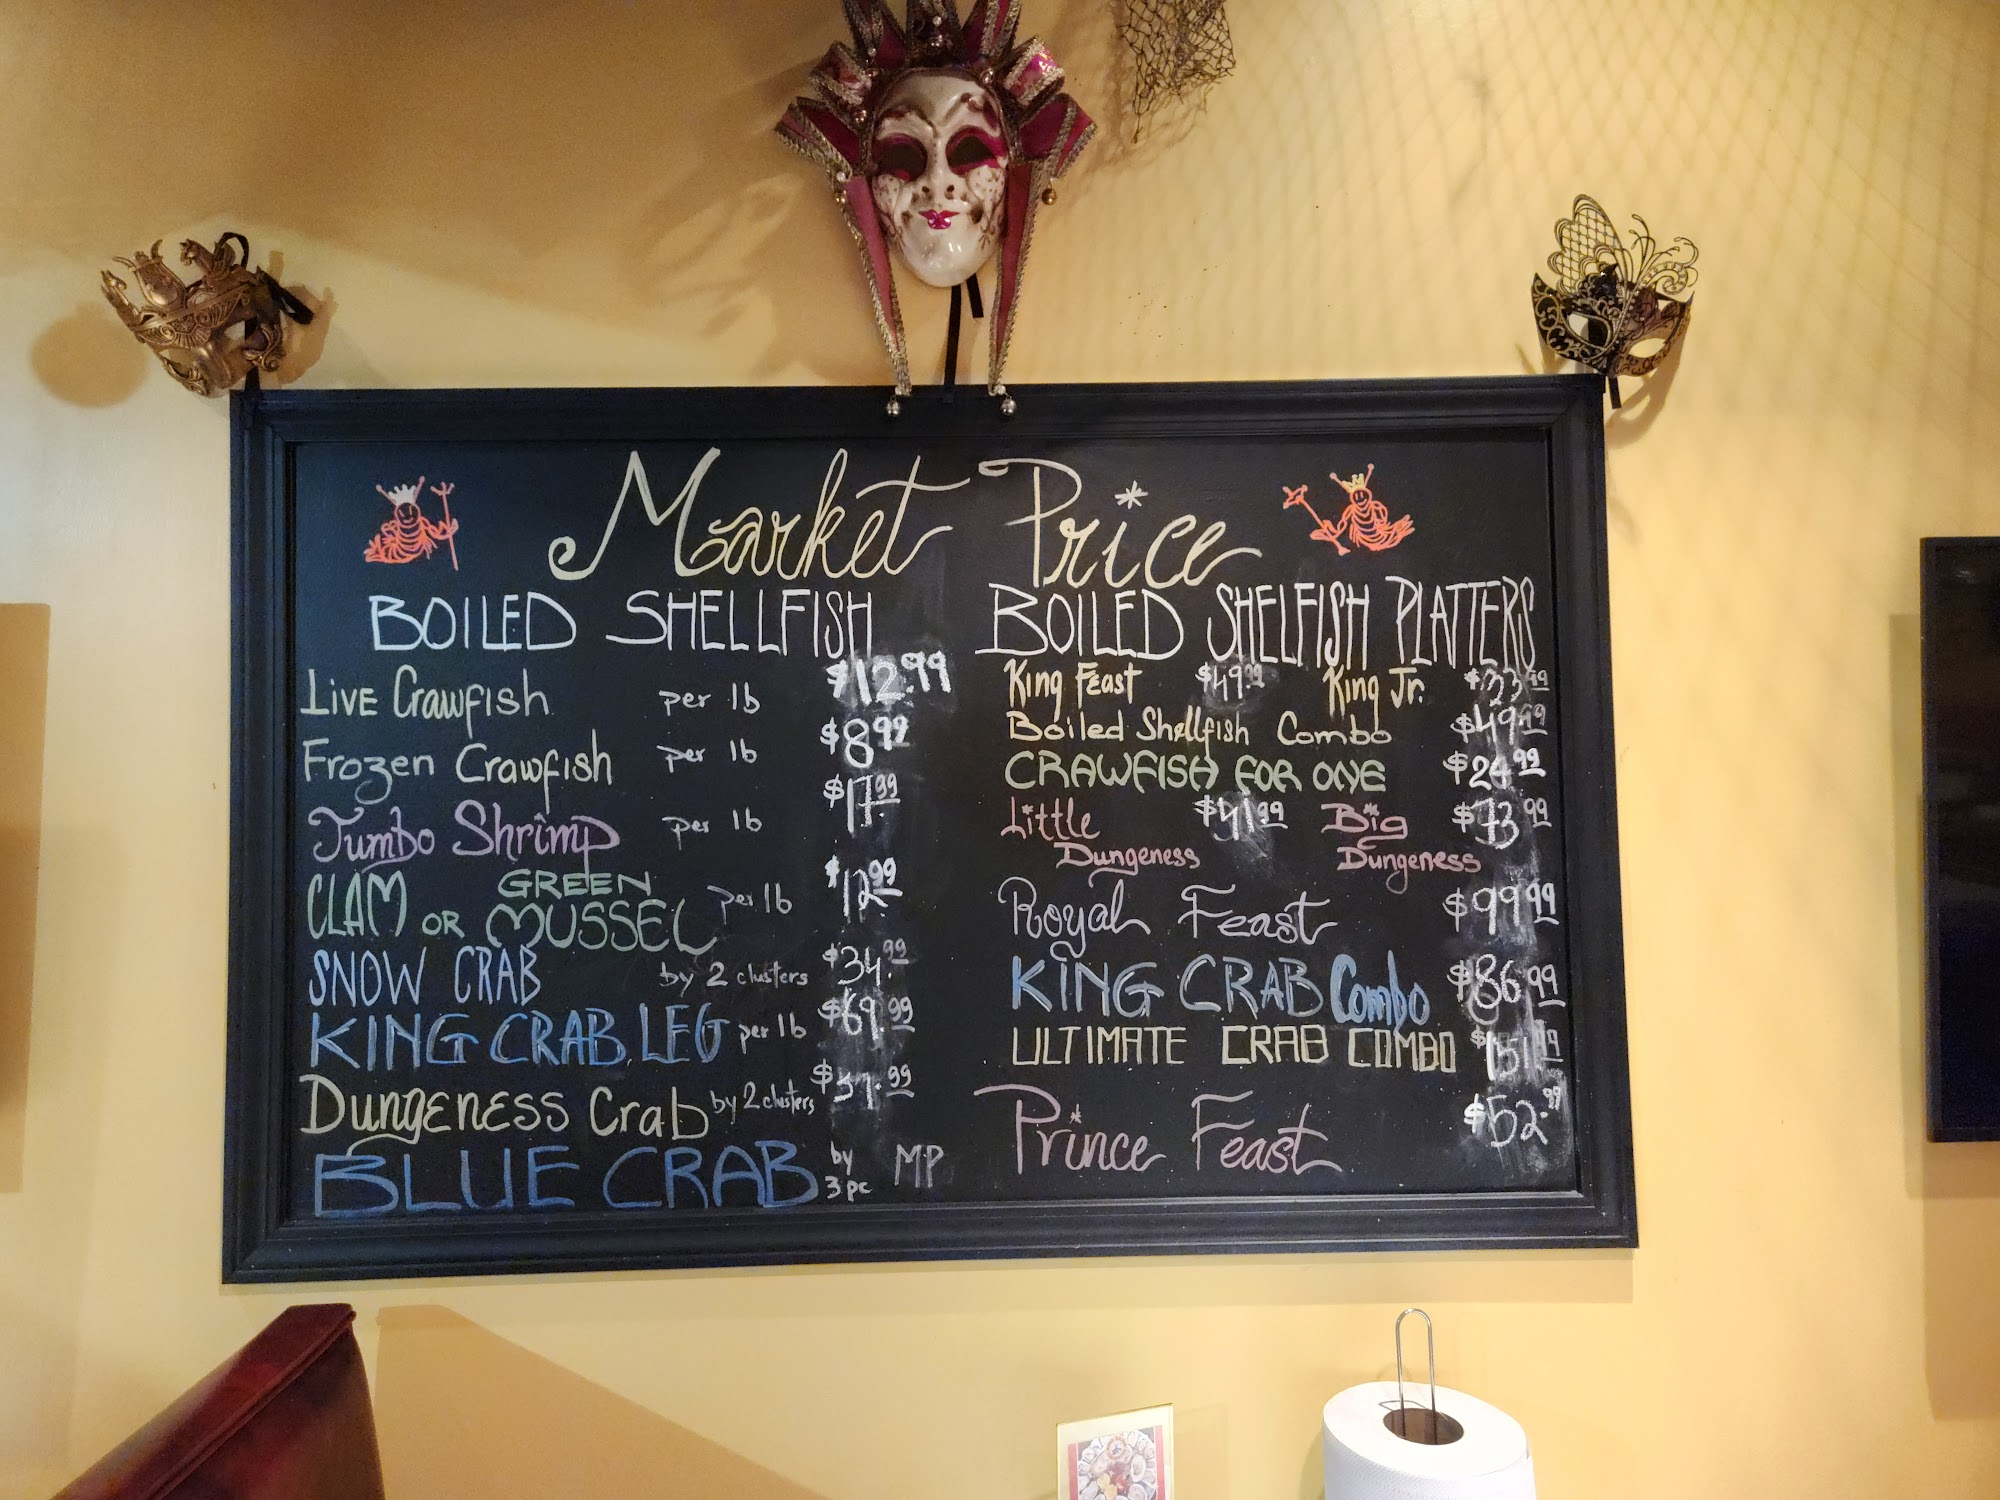 Market Price
BOILED SHELLFISH
Live Crawfish per lb $12.99
Frozen Crawfish per lb $8.99
Jumbo Shrimp per lb $17.99
CLAM OR GREEN MUSSEL per lb $12.99
SNOW CRAB by 2 clusters $34.99
KING CRAB LEG per lb $69.99
Dungeness Crab by 2 clusters
BLUE CRAB by 3 pc MP
BOILED SHELFISH PLATTERS
King Feast $49.99 King Jr. $33.99
Boiled Shellfish Combo $49.99
CRAWFISH FOR ONE $24.99
Little Dungeness $41.99 Big Dungeness $73.99
Royal Feast $99.99
KING CRAB Combo $86.99
ULTIMATE CRAB COMBO $151.99
Prince Feast $52.99